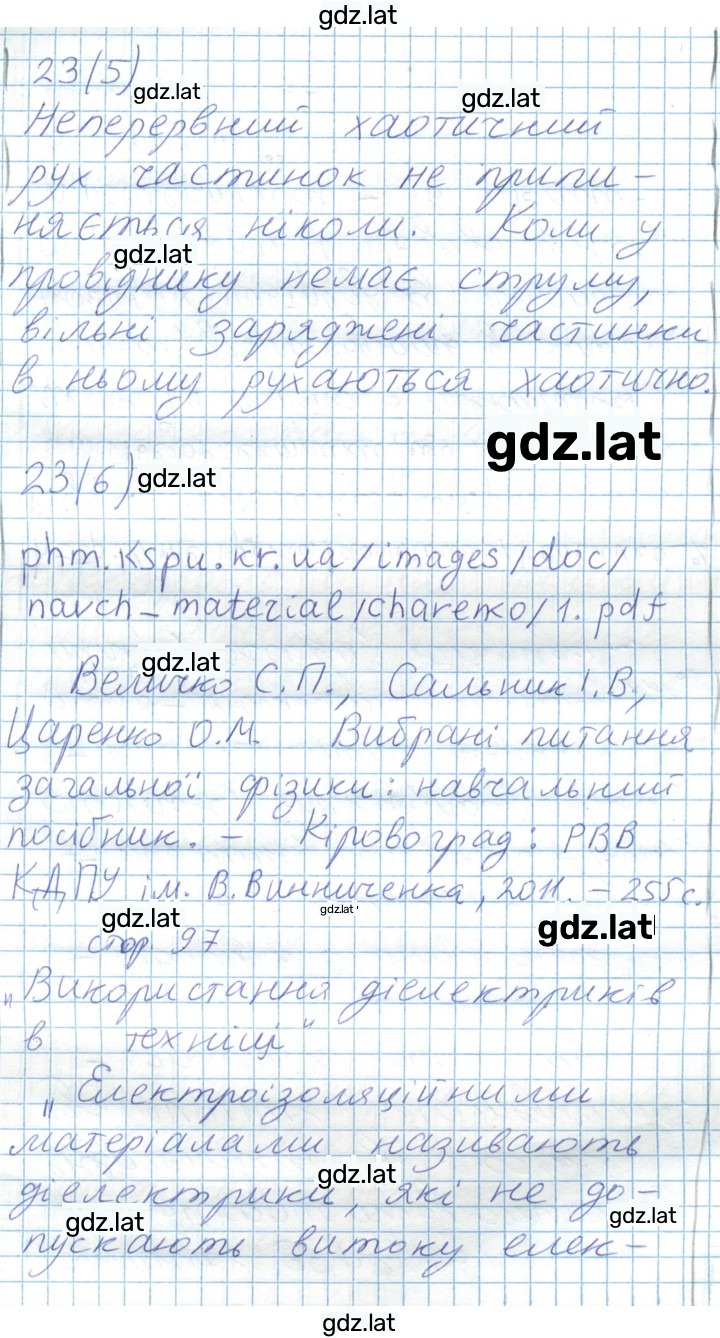 gdz.lat
23(5)
gdz.lat
gdz.lat
Неперервний хаотичний
рух частинок не припи-
няється ніколи. Коли у
gdz.lat
провіднику немає струму,
вільні заряджені частинки
в ньому рухаються хаотично.
gdz.lat
23(6)
gdz.lat
phm.kspu.kr.ua/images/doc/
navch_material/charenko/1.pdf
gdz.lat
Величко С.П., Сальник І.В.,
Царенко О.М. Вибрані питання
загальної фізики: навчальний
посібник. – Кіровоград: РВВ
КДПУ ім. В.Винниченка, 2011. – 255с.
gdz.lat
gdz.lat
gdz.lat
стор 97
„Використання діелектриків
в техніці"
„Електроізоляційними
матеріалами називають
gdz.lat
діелектрики, які не до-
gdz.lat
gdz.lat
пускають витоку елек-
gdz.lat